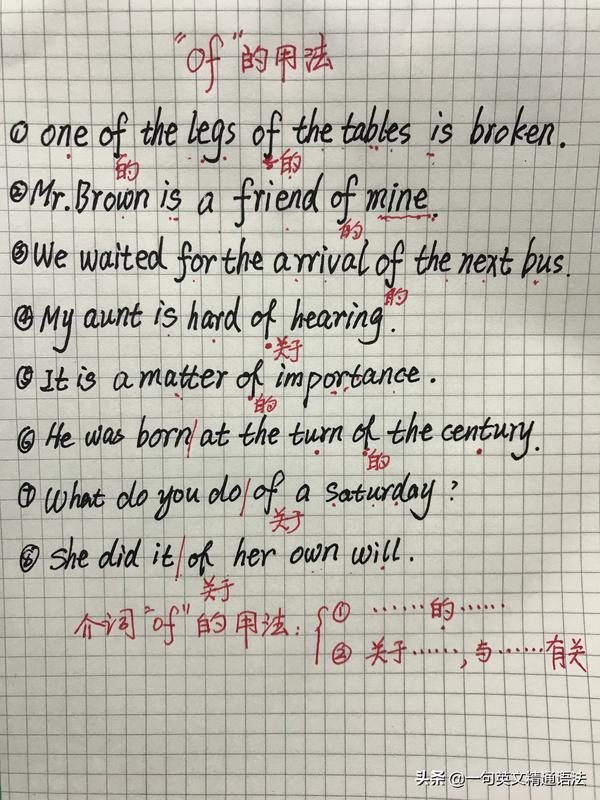 "of"的用法
① one of the legs of the tables is broken.
的 的
② Mr. Brown is a friend of mine.
的
③ We waited for the arrival of the next bus.
的
④ My aunt is hard of hearing.
关于
⑤ It is a matter of importance.
的
⑥ He was born/at the turn of the century.
的
⑦ What do you do/of a saturday?
关于
⑧ She did it/of her own will.
关于
介词"of"的用法: ① ……的……
② 关于……,与……有关
头条 @一句英文精通语法